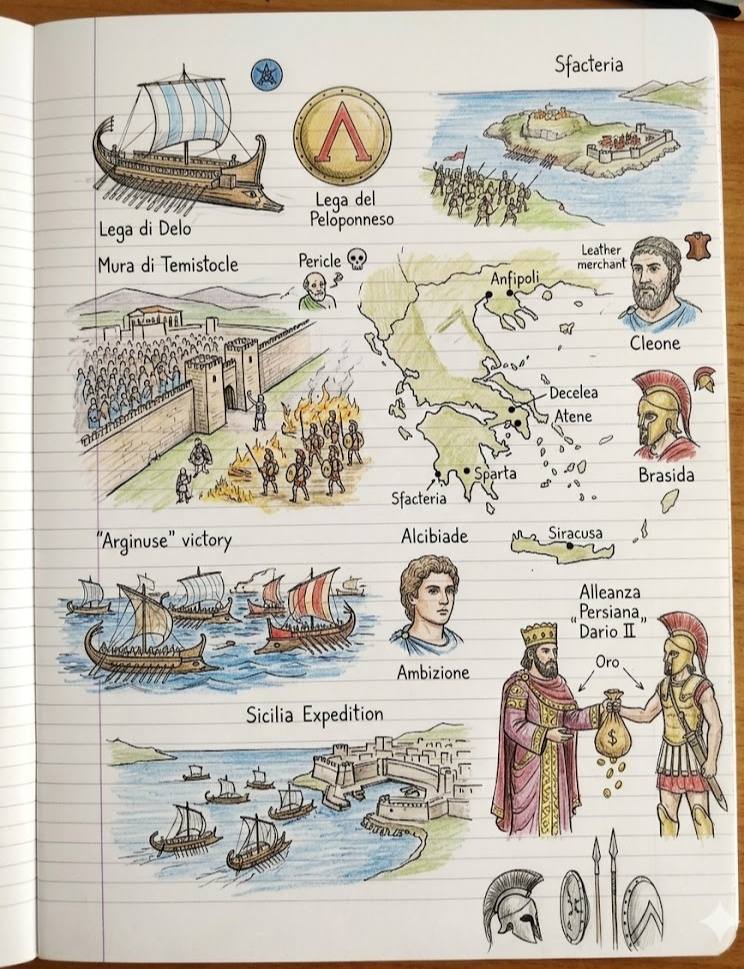 Sfacteria
Lega di Delo
Lega del
Peloponneso
Mura di Temistocle
Pericle
Leather
merchant
Cleone
Anfipoli
Decelea
Atene
Sparta
Sfacteria
Brasida
"Arginuse" victory
Alcibiade
Ambizione
Siracusa
Alleanza
Persiana
„Dario II"
Oro
$
Sicilia Expedition